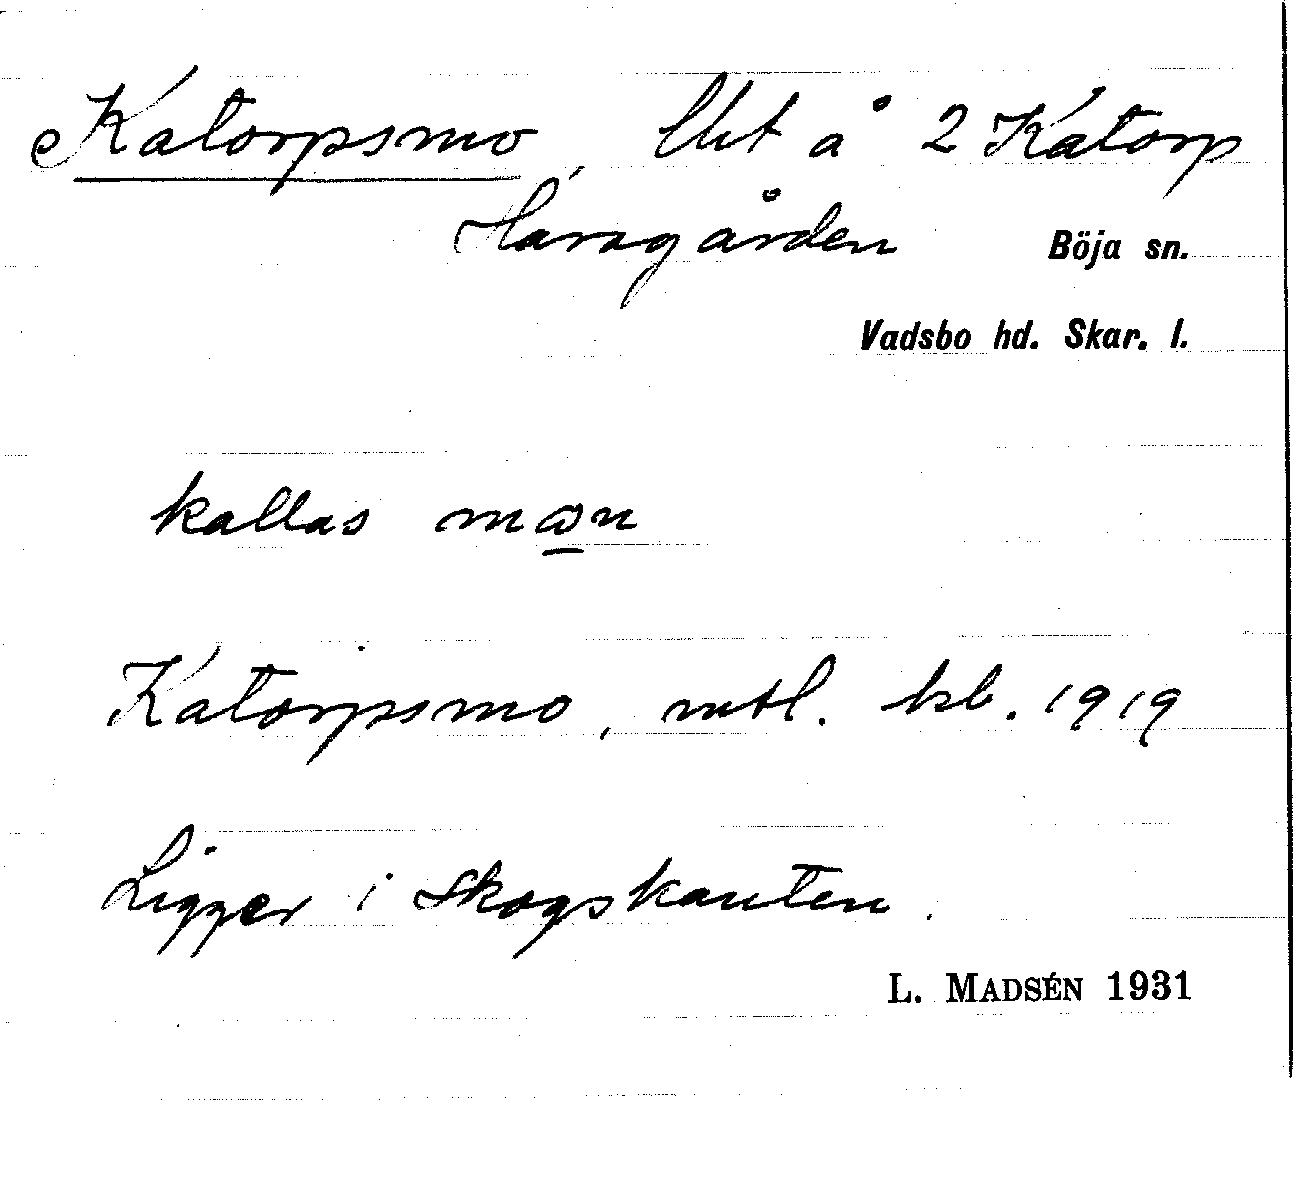 Katorpsmo, lht å 2 Katorp
Haragården Böja sn.
Vadsbo hd. Skar. l.
kallas
Katorpsmo, mtl. kb. 1919
Ligger i Skogskanten.
L. MADSÉN 1931